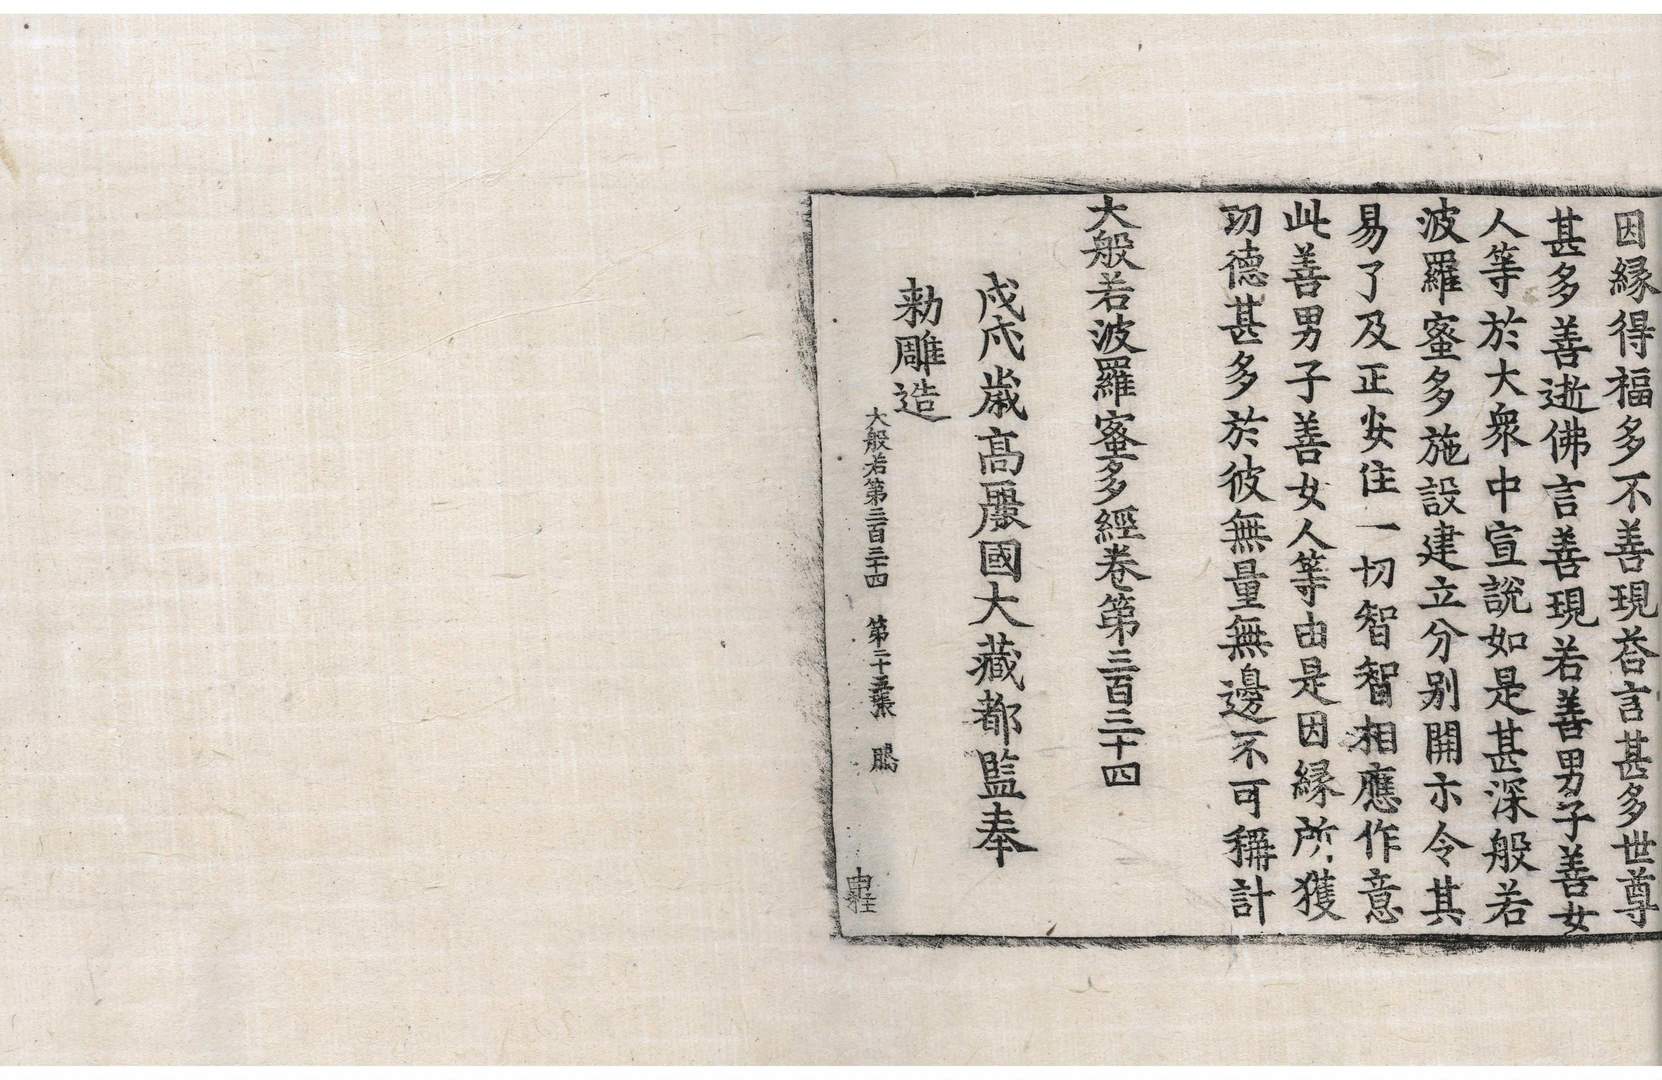 因緣得福多不善現荅言甚多世尊
甚多善逝佛言善現若善男子善女
人等於大衆中宣說如是甚深般若
波羅蜜多施設建立分別開示令其
易了及正安住一切智智相應作意
此善男子善女人等由是因緣所獲
功德甚多於彼無量無邊不可稱計
大般若波羅蜜多經卷第三百三十四
戊戌歲高麗國大藏都監奉
勑雕造
大般若第三百三十四 第二十五張 鵬